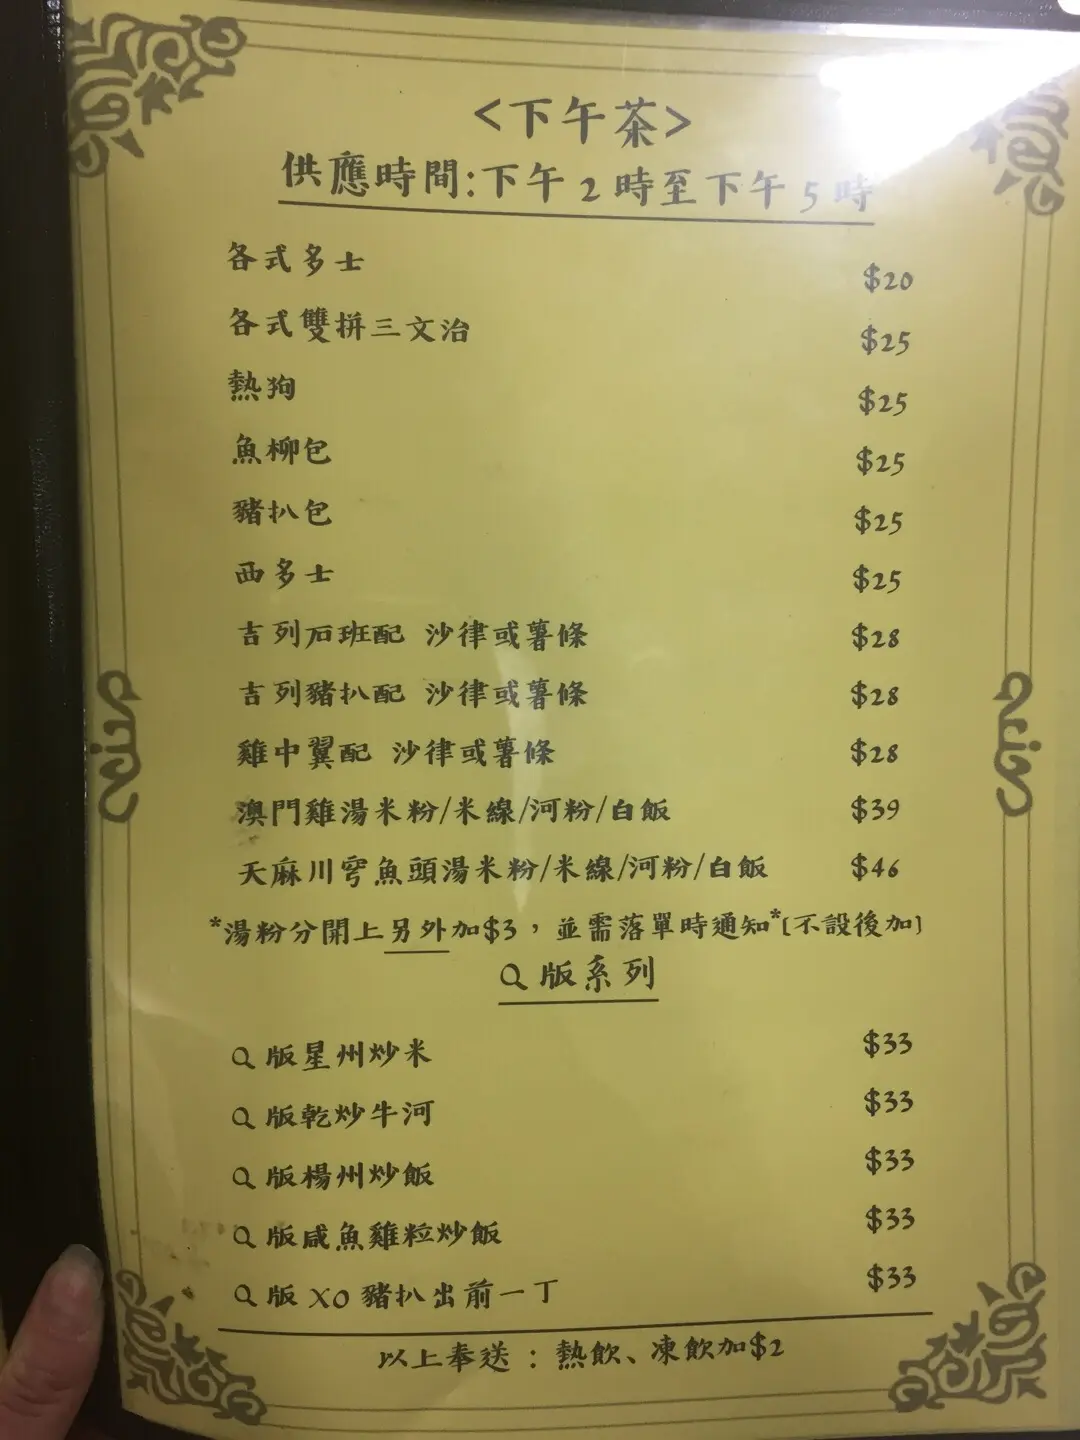 <下午茶>
供應時間:下午2時至下午5時
各式多士 $20
各式雙拼三文治 $25
熱狗 $25
魚柳包 $25
豬扒包 $25
西多士 $25
吉列石班配 沙律或薯條 $28
吉列豬扒配 沙律或薯條 $28
雞中翼配 沙律或薯條 $28
澳門雞湯米粉/米線/河粉/白飯 $39
天麻川穹魚頭湯米粉/米線/河粉/白飯 $46
*湯粉分開上另外加$3，並需落單時通知*(不設後加)
Q版系列
Q版星州炒米 $33
Q版乾炒牛河 $33
Q版楊州炒飯 $33
Q版咸魚雞粒炒飯 $33
Q版XO豬扒出前一丁 $33
以上奉送：熱飲、凍飲加$2